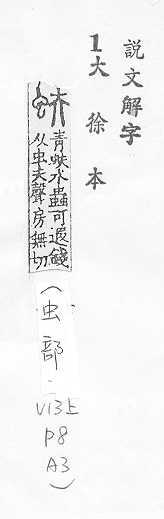 説文解字
1大徐本
蚨
青蚨水蟲可還錢
从虫夫聲房無切
(虫部.
V13上
P8
A3)